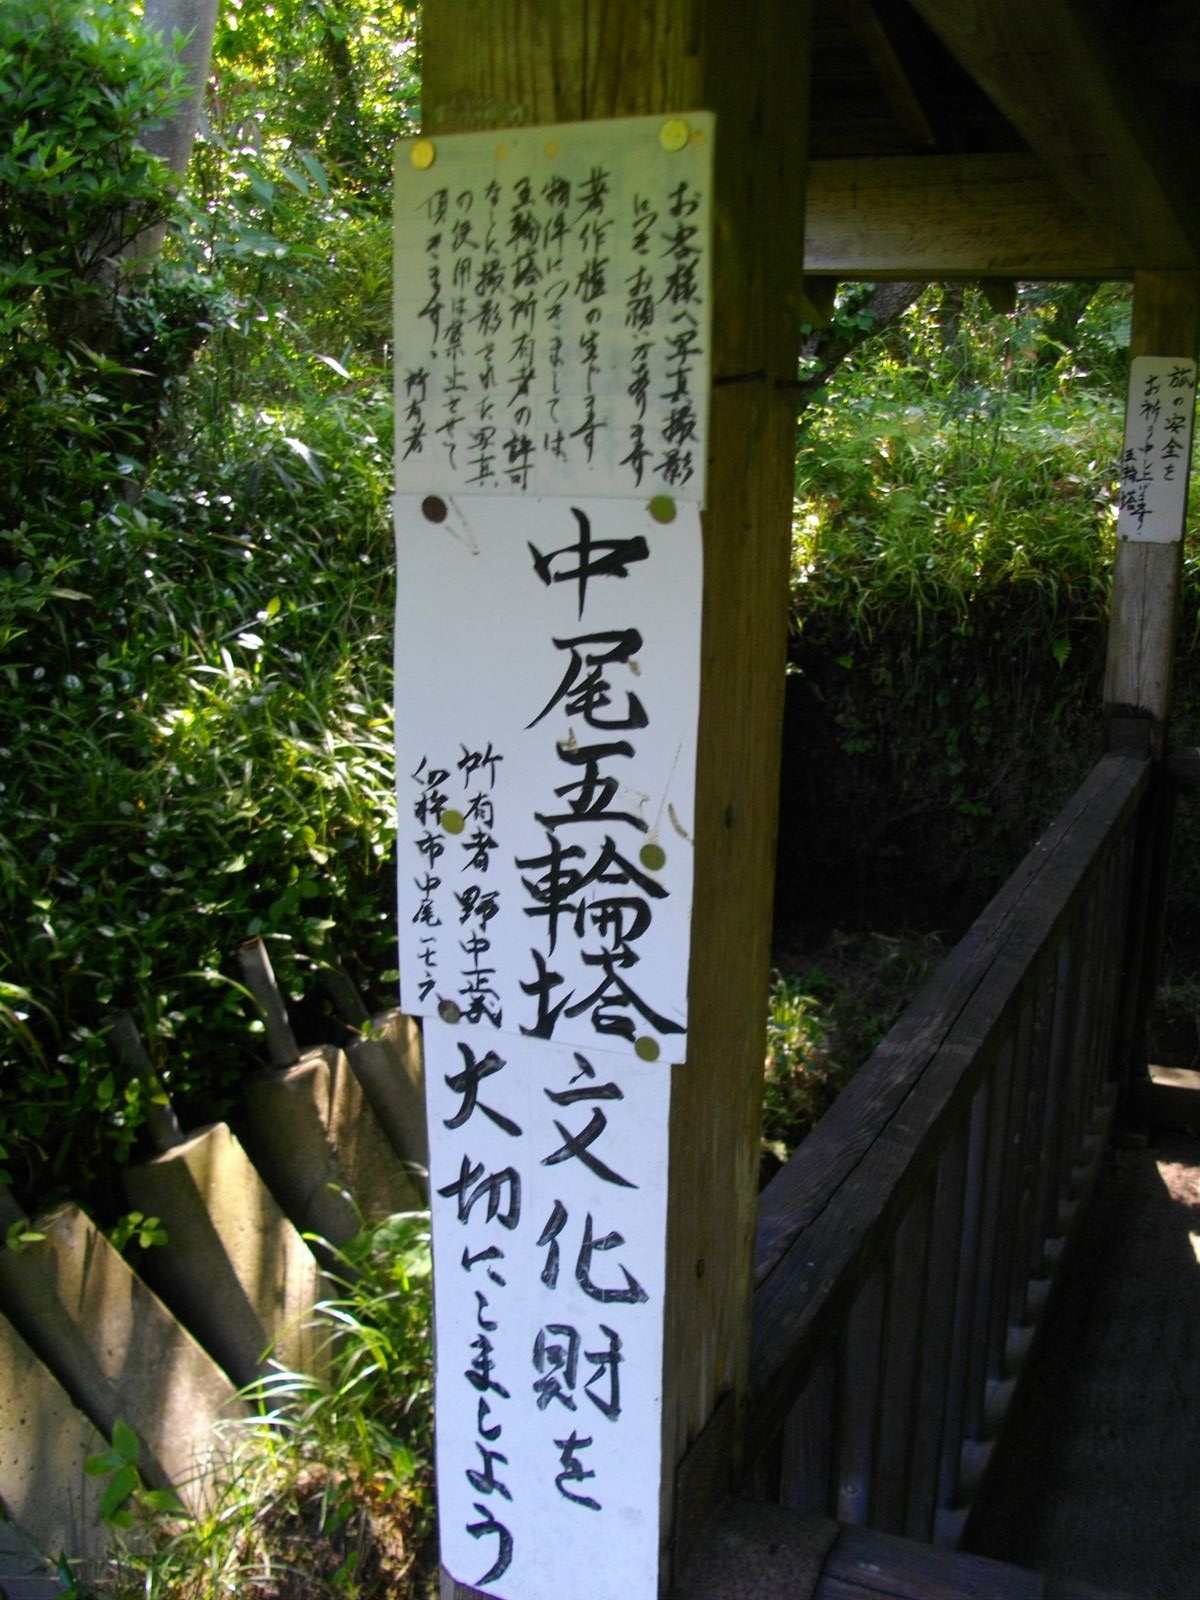 お客様へ写真撮影
につきお願い申し上げます
著作権の生じます
物件につきましては
五輪塔所有者の許可
なしに撮影された写真
の使用は禁止させて
頂きます、
所有者
中尾五輪塔
所有者 野中正義
臼杵市中尾一七六
文化財を
大切にしましよう
旅の安全を
お祈り申し上げます
五輪塔